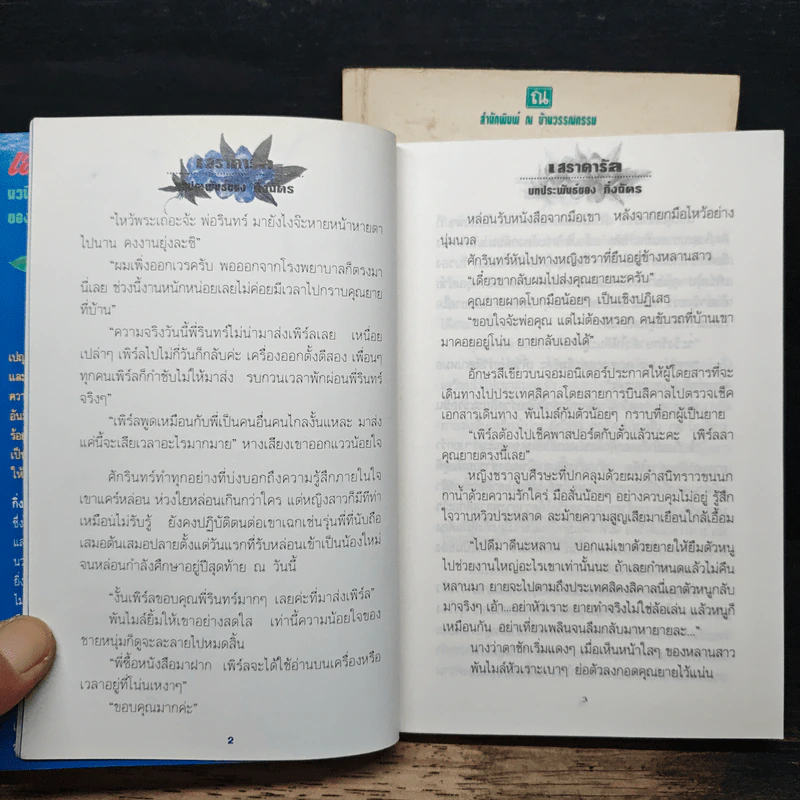 ณ
สำนักพิมพ์ ณ บ้านวรรณกรรม
เสราดารัล
บทประพันธ์ของ กิ่งฉัตร
“ไหว้พระเถอะจ้ะ พ่อรินทร์ มายังไงจ๊ะหายหน้าหายตา
ไปนาน คงงานยุ่งละซี”
“ผมเพิ่งออกเวรครับ พอออกจากโรงพยาบาลก็ตรงมา
นี่เลย ช่วงนี้งานหนักหน่อยเลยไม่ค่อยมีเวลาไปกราบคุณยาย
ที่บ้าน”
“ความจริงวันนี้พี่รินทร์ไม่น่ามาส่งเพิร์ลเลย เหนื่อย
เปล่าๆ เพิร์ลไปไม่กี่วันก็กลับค่ะ เครื่องออกตั้งตีสอง เพื่อนๆ
ทุกคนเพิร์ลก็กำชับไม่ให้มาส่ง รบกวนเวลาพักผ่อนพี่รินทร์
จริงๆ”
“เพิร์ลพูดเหมือนกับพี่เป็นคนอื่นคนไกลงั้นแหละ มาส่ง
แค่นี้จะเสียเวลาอะไรมากมาย” หางเสียงเขาออกแววน้อยใจ
ศักรินทร์ทำทุกอย่างที่บ่งบอกถึงความรู้สึกภายในใจ
เขาแคร์หล่อน ห่วงใยหล่อนเกินกว่าใคร แต่หญิงสาวก็มีทีท่า
เหมือนไม่รับรู้ ยังคงปฏิบัติตนต่อเขาเฉกเช่นรุ่นพี่ที่นับถือ
เสมอต้นเสมอปลายตั้งแต่วันแรกที่รับหล่อนเข้าเป็นน้องใหม่
จนหล่อนกำลังศึกษาอยู่ปีสุดท้าย ณ วันนี้
“งั้นเพิร์ลขอบคุณพี่รินทร์มากๆ เลยค่ะที่มาส่งเพิร์ล”
พันไมล์ยิ้มให้เขาอย่างสดใส เท่านี้ความน้อยใจของ
ชายหนุ่มก็ดูจะละลายไปหมดสิ้น
“พี่ซื้อหนังสือมาฝาก เพิร์ลจะได้ใช้อ่านบนเครื่องหรือ
เวลาอยู่ที่โน่นเหงาๆ”
“ขอบคุณมากค่ะ”
2
เสราดารัล
บทประพันธ์ของ กิ่งฉัตร
หล่อนรับหนังสือจากมือเขา หลังจากยกมือไหว้อย่าง
นุ่มนวล
ศักรินทร์หันไปทางหญิงชราที่ยืนอยู่ข้างหลานสาว
“เดี๋ยวขากลับผมไปส่งคุณยายนะครับ”
คุณยายผาดโบกมือน้อยๆ เป็นเชิงปฏิเสธ
“ขอบใจจ้ะพ่อคุณ แต่ไม่ต้องหรอก คนขับรถที่บ้านเขา
มาคอยอยู่โน่น ยายกลับเองได้”
อักษรสีเขียวบนจอมอนิเตอร์ประกาศให้ผู้โดยสารที่จะ
เดินทางไปประเทศสิคาลโดยสายการบินสิคาลไปตรวจเช็ค
เอกสารเดินทาง พันไมล์ก้มตัวน้อยๆ กราบที่อกผู้เป็นยาย
“เพิร์ลต้องไปเช็คพาสปอร์ตกับตั๋วแล้วนะคะ เพิร์ลลา
คุณยายตรงนี้เลย”
หญิงชราลูบศีรษะที่ปกคลุมด้วยผมดำสนิทราวขนนก
กาน้ำด้วยความรักใคร่ มือสั่นน้อยๆ อย่างควบคุมไม่อยู่ รู้สึก
ใจวาบหวิวประหลาด ละม้ายความสูญเสียมาเยือนใกล้เอื้อม
“ไปดีมาดีนะหลาน บอกแม่เขาด้วยยายให้ยืมตัวหนู
ไปช่วยงานใหญ่อะไรเขาเท่านั้นนะ ถ้าเลยกำหนดแล้วไม่คืน
หลานมา ยายจะไปตามถึงประเทศสิคงสิคาลนี่เอาตัวหนูกลับ
มาจริงๆ เอ้า...อย่าหัวเราะ ยายทำจริงไม่ใช่ล้อเล่น แล้วหนูก็
เหมือนกัน อย่าเที่ยวเพลินจนลืมกลับมาหายายละ...”
นางว่าตาชักเริ่มแดงๆ เมื่อเห็นหน้าใสๆ ของหลานสาว
พันไมล์หัวเราะเบาๆ ย่อตัวลงกอดคุณยายไว้แน่น
3